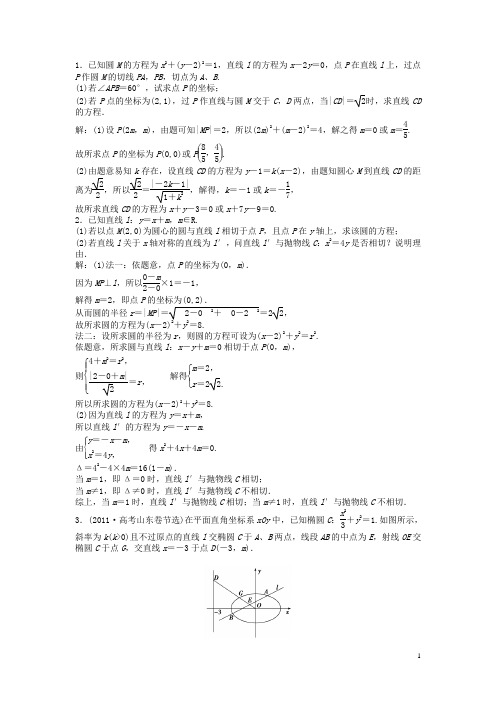 1．已知圆M的方程为x²＋(y－2)²＝1，直线l的方程为x－2y＝0，点P在直线l上，过点
P作圆M的切线PA，PB，切点为A、B.
(1)若∠APB＝60°，试求点P的坐标；
(2)若P点的坐标为(2,1)，过P作直线与圆M交于C，D两点，当|CD|＝√2时，求直线CD
的方程．
解：(1)设P(2m，m)，由题可知|MP|＝2，所以(2m)²＋(m－2)²＝4，解之得m＝0或m＝4/5.
故所求点P的坐标为P(0,0)或P(8/5，4/5).
(2)由题意易知k存在，设直线CD的方程为y－1＝k(x－2)，由题知圆心M到直线CD的距
离为√2/2，所以√2/2＝|－2k－1|/√1＋k²，解得，k＝－1或k＝－1/7，
故所求直线CD的方程为x＋y－3＝0或x＋7y－9＝0.
2．已知直线l：y＝x＋m，m∈R.
(1)若以点M(2,0)为圆心的圆与直线l相切于点P，且点P在y轴上，求该圆的方程；
(2)若直线l关于x轴对称的直线为l′，问直线l′与抛物线C：x²＝4y是否相切？说明理
由．
解：(1)法一：依题意，点P的坐标为(0，m)．
因为MP⊥l，所以0－m/2－0×1＝－1，
解得m＝2，即点P的坐标为(0,2)．
从而圆的半径r＝|MP|＝√ 2－0 ²＋ 0－2 ²＝2√2，
故所求圆的方程为(x－2)²＋y²＝8.
法二：设所求圆的半径为r，则圆的方程可设为(x－2)²＋y²＝r².
依题意，所求圆与直线l：x－y＋m＝0相切于点P(0，m)，
则{4＋m²＝r²，|2－0＋m|/√2＝r， 解得{m＝2，r＝2√2.
所以所求圆的方程为(x－2)²＋y²＝8.
(2)因为直线l的方程为y＝x＋m，
所以直线l′的方程为y＝－x－m.
由{y＝－x－m，x²＝4y， 得x²＋4x＋4m＝0.
Δ＝4²－4×4m＝16(1－m)．
当m＝1，即Δ＝0时，直线l′与抛物线C相切；
当m≠1，即Δ≠0时，直线l′与抛物线C不相切．
综上，当m＝1时，直线l′与抛物线C相切；当m≠1时，直线l′与抛物线C不相切．
3．(2011·高考山东卷节选)在平面直角坐标系xOy中，已知椭圆C：x²/3＋y²＝1.如图所示，
斜率为k(k>0)且不过原点的直线l交椭圆C于A、B两点，线段AB的中点为E，射线OE交
椭圆C于点G，交直线x＝－3于点D(－3，m)．
y
D
G
A
l
E
－3
O
x
B
1